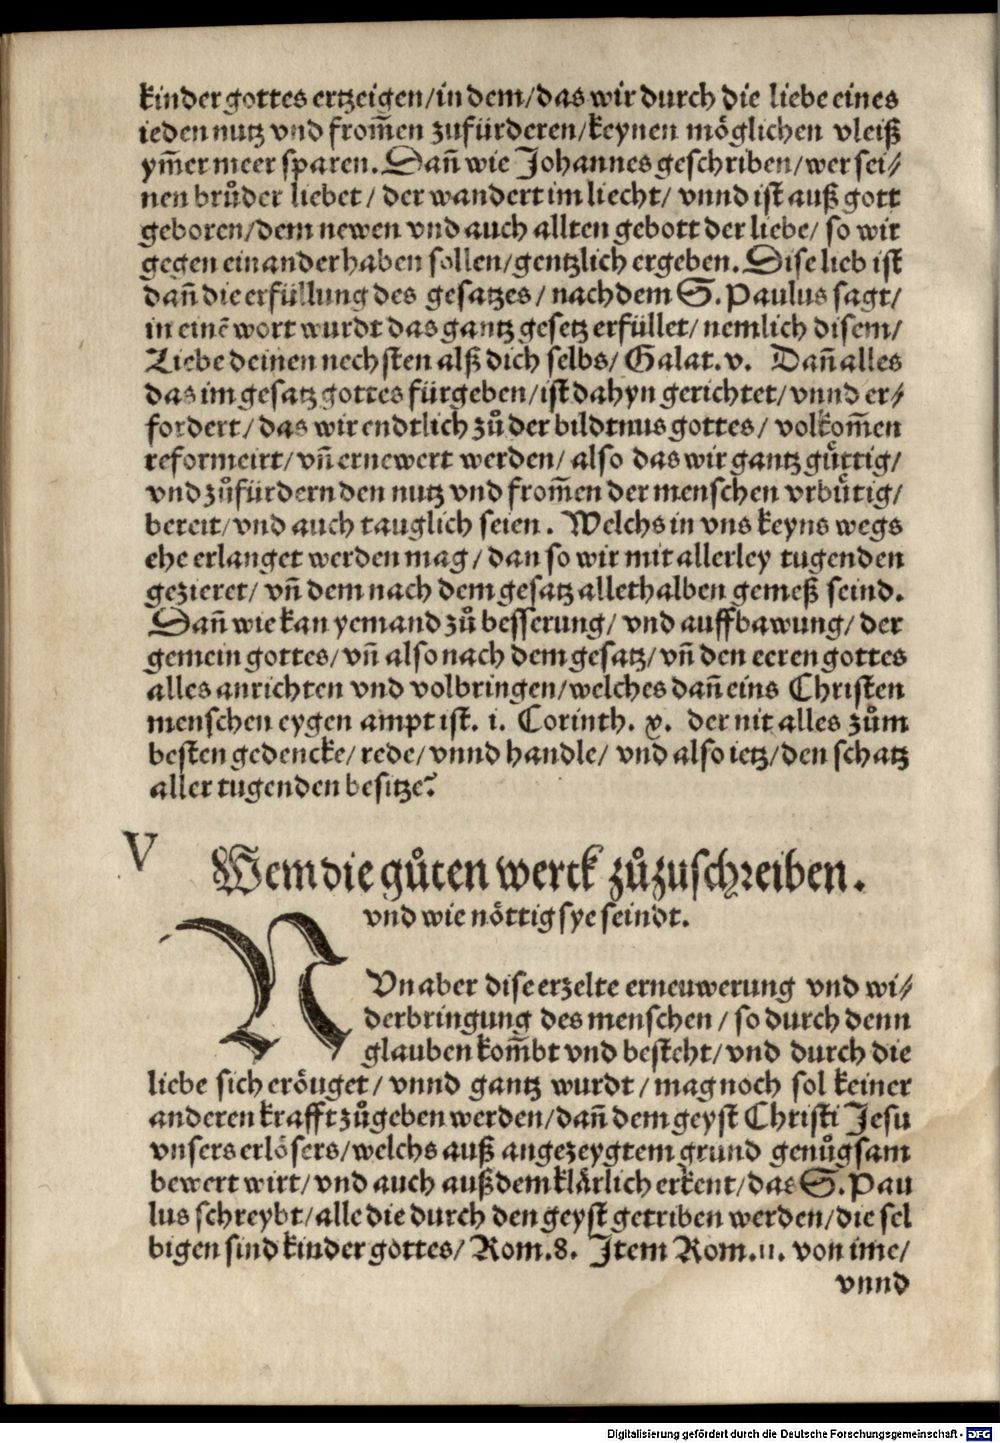 kinder gottes ertzeigen/in dem/das wir durch die liebe eines
ieden nutz vnd from̃en zufürderen/keynen möglichen vleiß
ym̃er meer sparen. Dan̄ wie Johannes geschriben/wer sei⸗
nen brůder liebet/ der wandert im liecht/ vnnd ist auß gott
geboren/dem newen vnd auch allten gebott der liebe/ so wir
gegen einander haben sollen/gentzlich ergeben. Dise lieb ist
dan̄ die erfüllung des gesatzes/ nach dem S. Paulus sagt/
in einẽ wort wurdt das gantz gesetz erfüllet/ nemlich disem/
Liebe deinen nechsten alß dich selbs/ Galat. v. Dan̄ alles
das im gesatz gottes fürgeben/ist dahyn gerichtet/ vnnd er⸗
fordert/ das wir endtlich zů der bildtnus gottes/ volkom̃en
reformeirt/ vn̄ ernewert werden/ also das wir gantz gůttig/
vnd zůfürdern den nutz vnd from̃en der menschen vrbůtig/
bereit/ vnd auch tauglich seien. Welchs in vns keyns wegs
ehe erlanget werden mag/ dan so wir mit allerley tugenden
gezieret/ vn̄ dem nach dem gesatz allethalben gemeß seind.
Dan̄ wie kan yemand zů besserung/ vnd auffbawung/ der
gemein gottes/ vn̄ also nach dem gesatz/ vn̄ den eeren gottes
alles anrichten vnd volbringen/welches dan̄ eins Christen
menschen eygen ampt ist. i. Corinth. x. der nit alles zům
besten gedencke/ rede/ vnnd handle/ vnd also ietz/den schatz
aller tugenden besitze?
V
Wem die gůten werck zůzuschreiben.
vnd wie nöttig sye seindt.
NVn aber dise erzelte erneuwerung vnd wi⸗
derbringung des menschen/ so durch denn
glauben kom̃bt vnd besteht/ vnd durch die
liebe sich eröuget/ vnnd gantz wurdt/ mag noch sol keiner
anderen krafft zůgeben werden/dan̄ dem geyst Christi Jesu
vnsers erlösers/welchs auß angezeygtem grund genůgsam
bewert wirt/ vnd auch auß dem klärlich erkent/ das S. Pau
lus schreybt/ alle die durch den geyst getriben werden/die sel
bigen sind kinder gottes/ Rom. 8. Item Rom. 11. von ime/
vnnd
Digitalisierung gefördert durch die Deutsche Forschungsgemeinschaft - DFG